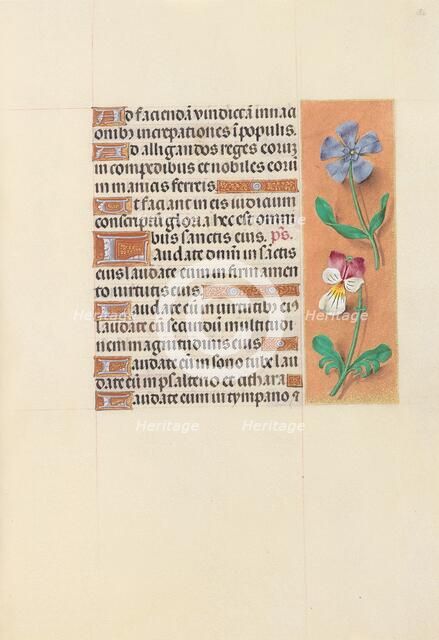 Ad faciendā vindictam in naci
onibꝫ increpationes ī populis.
Ad alligandos reges eoruꝫ
in compedibus et nobiles eorū
in manicis ferreis
Ut faciant in eis iudicium
conscriptū gloria hec est omni
bus sanctis eius. ps.
Laudate dnm in sāctis
eius laudate eum in firmamen
to virtutis eius
Laudate eū in virtutibꝫ eiꝰ
laudate eū secundū multitudi
nem magnitudinis eius
Laudate eum in sono tube lau
date eū in psalterio et cithara
Laudate eum in tympano ⁊
Heritage
Heritage
Heritage
Heritage
Heritage
Heritage